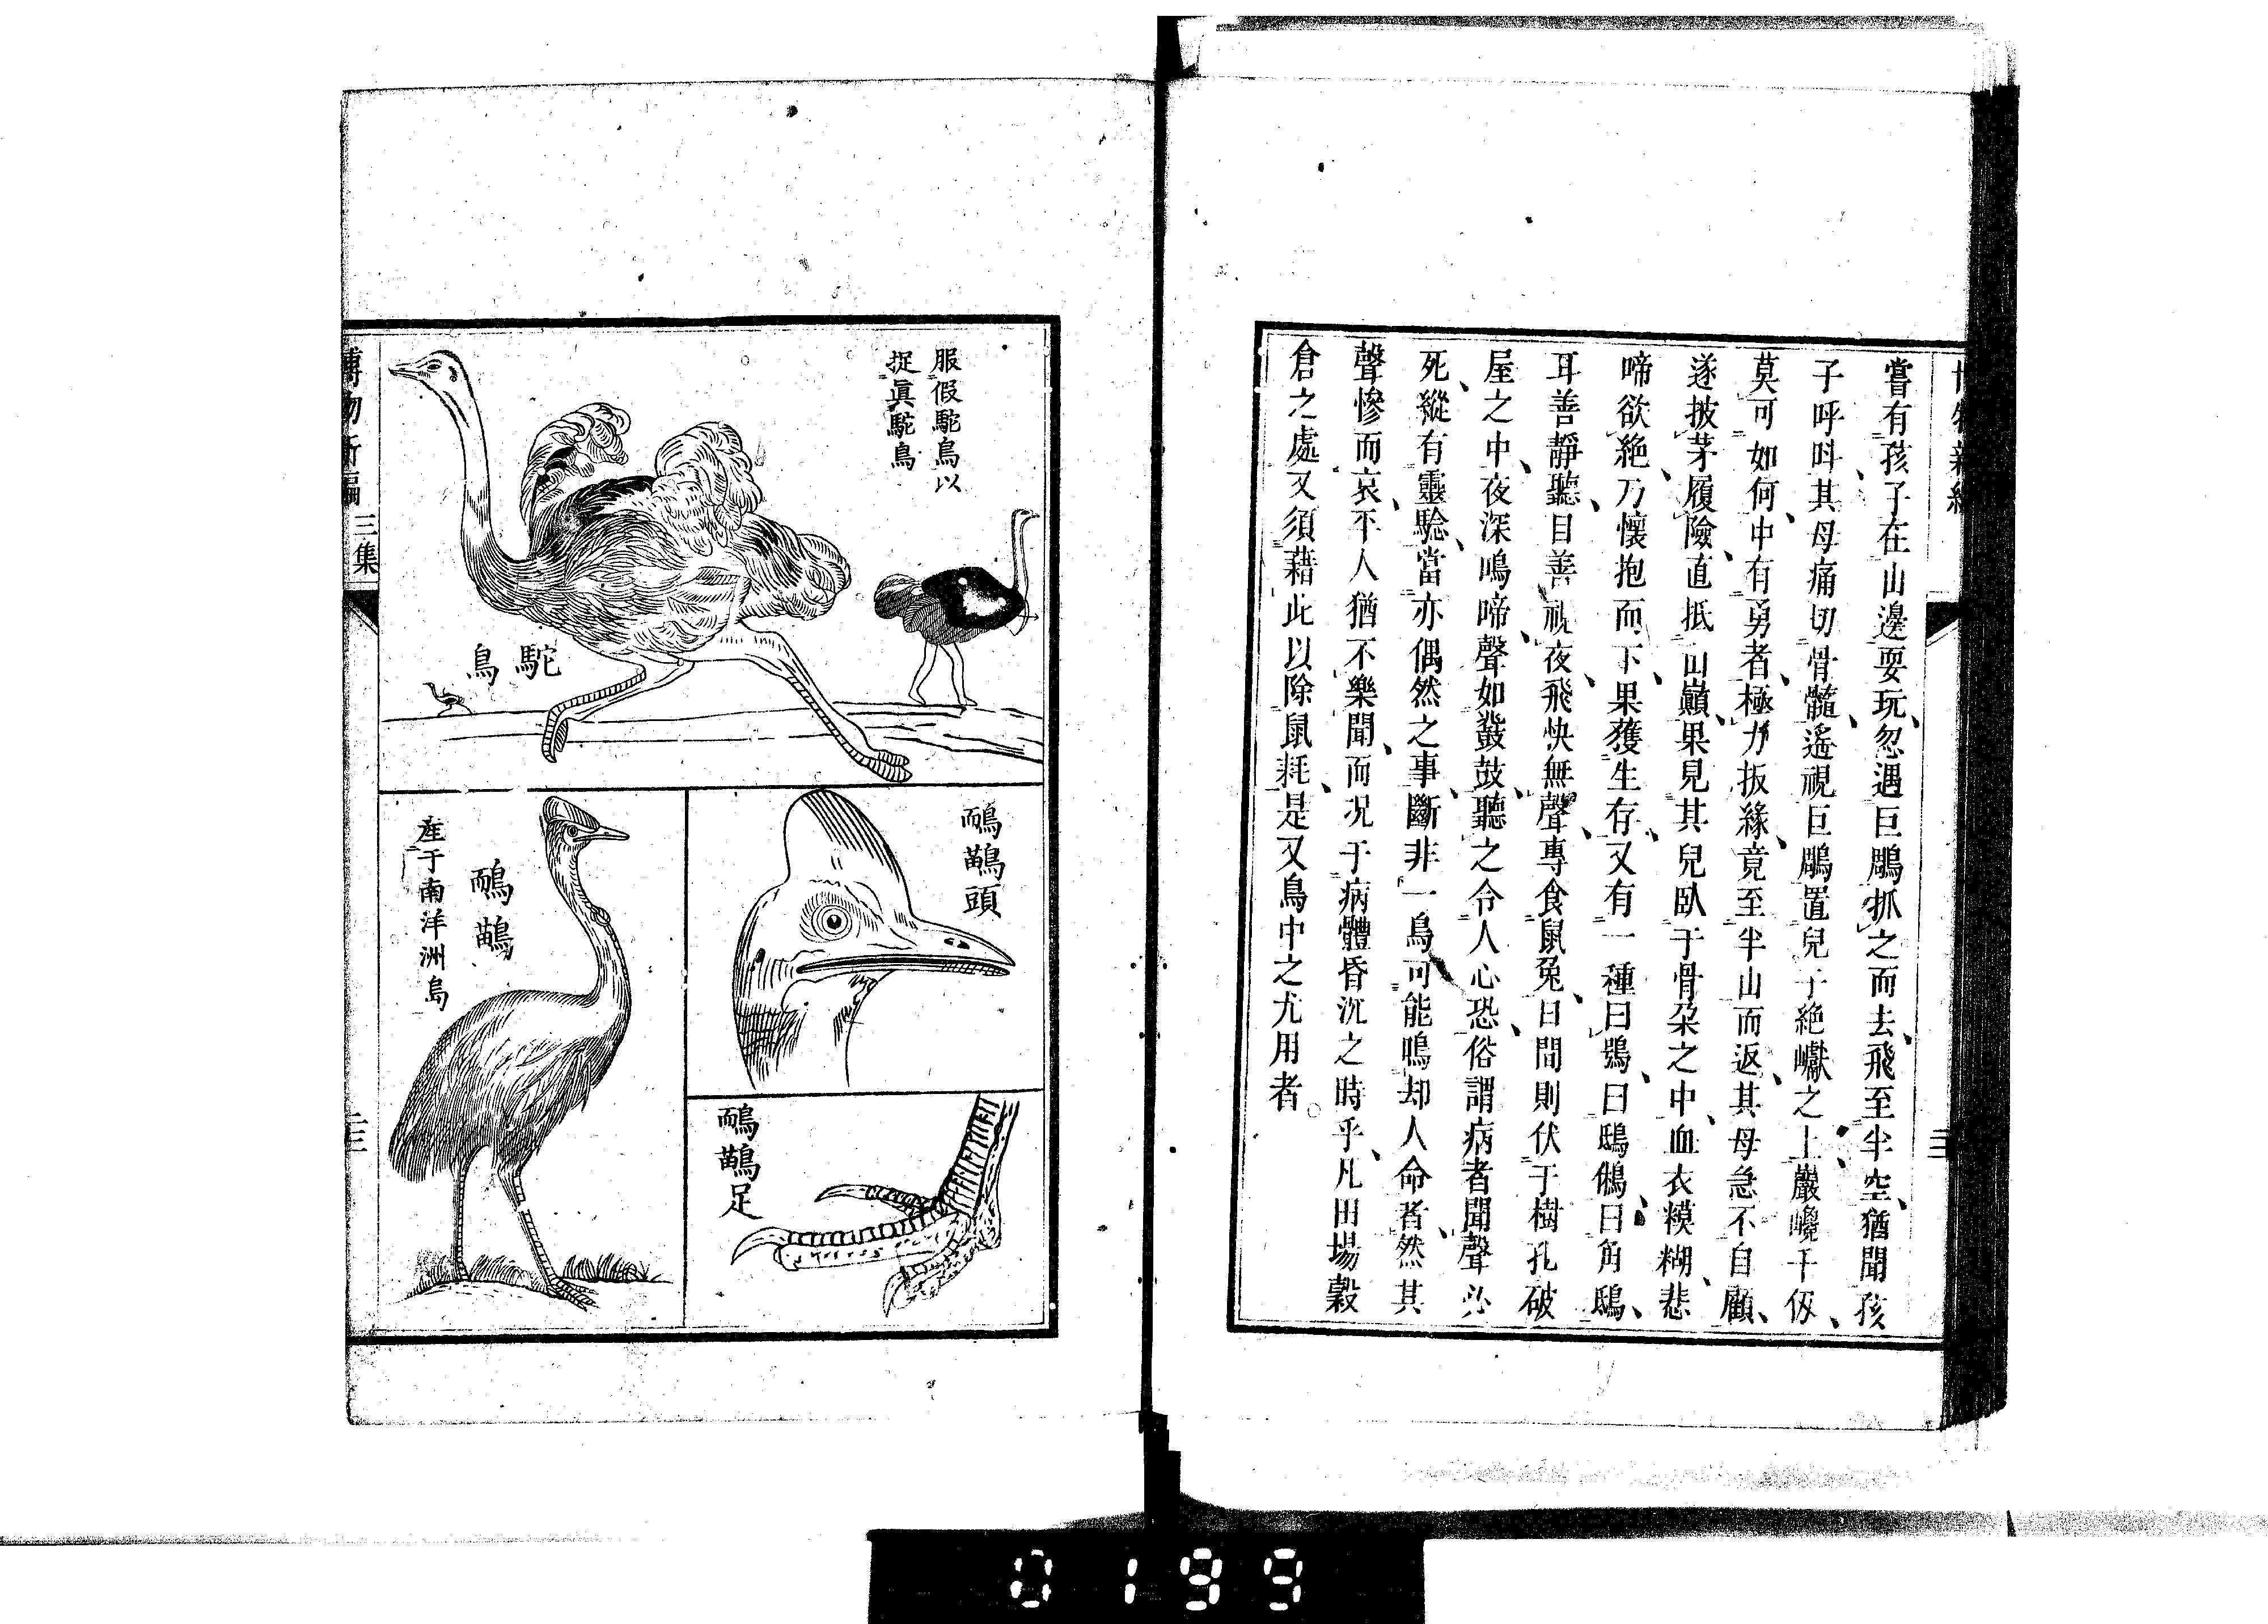 嘗有孩子在山邊耍玩、忽遇巨鵰抓之而去、飛至半空、猶聞孩
子呼呌、其母痛切骨髓、遙視巨鵰置兒于絶巘之上、巖巉千仭、
莫可如何、中有勇者、極力扳緣、竟至半山而返、其母急不自顧、
遂披茅履險、直抵山巔、果見其兒臥于骨朶之中、血衣糢糊、悲
啼欲絶、乃懷抱而下、果獲生存、又有一種曰鴞、曰鴟鵂、曰角鴟、
耳善靜聽、目善視夜、飛快無聲、專食鼠兔、日間則伏于樹孔破
屋之中、夜深鳴啼、聲如鼗鼓、聽之令人心恐、俗謂病者聞聲必
死、縱有靈騐、當亦偶然之事、斷非一鳥可能鳴却人命者、然其
聲慘而哀、平人猶不樂聞、而况于病體昏沉之時乎、凡田場穀
倉之處、又須藉此以除鼠耗、是又鳥中之尤用者。
服假駝鳥以
捉眞駝鳥
駝鳥
鴯鶓頭
鴯鶓
產于南洋洲島
鴯鶓足
博物新編
三集
0199